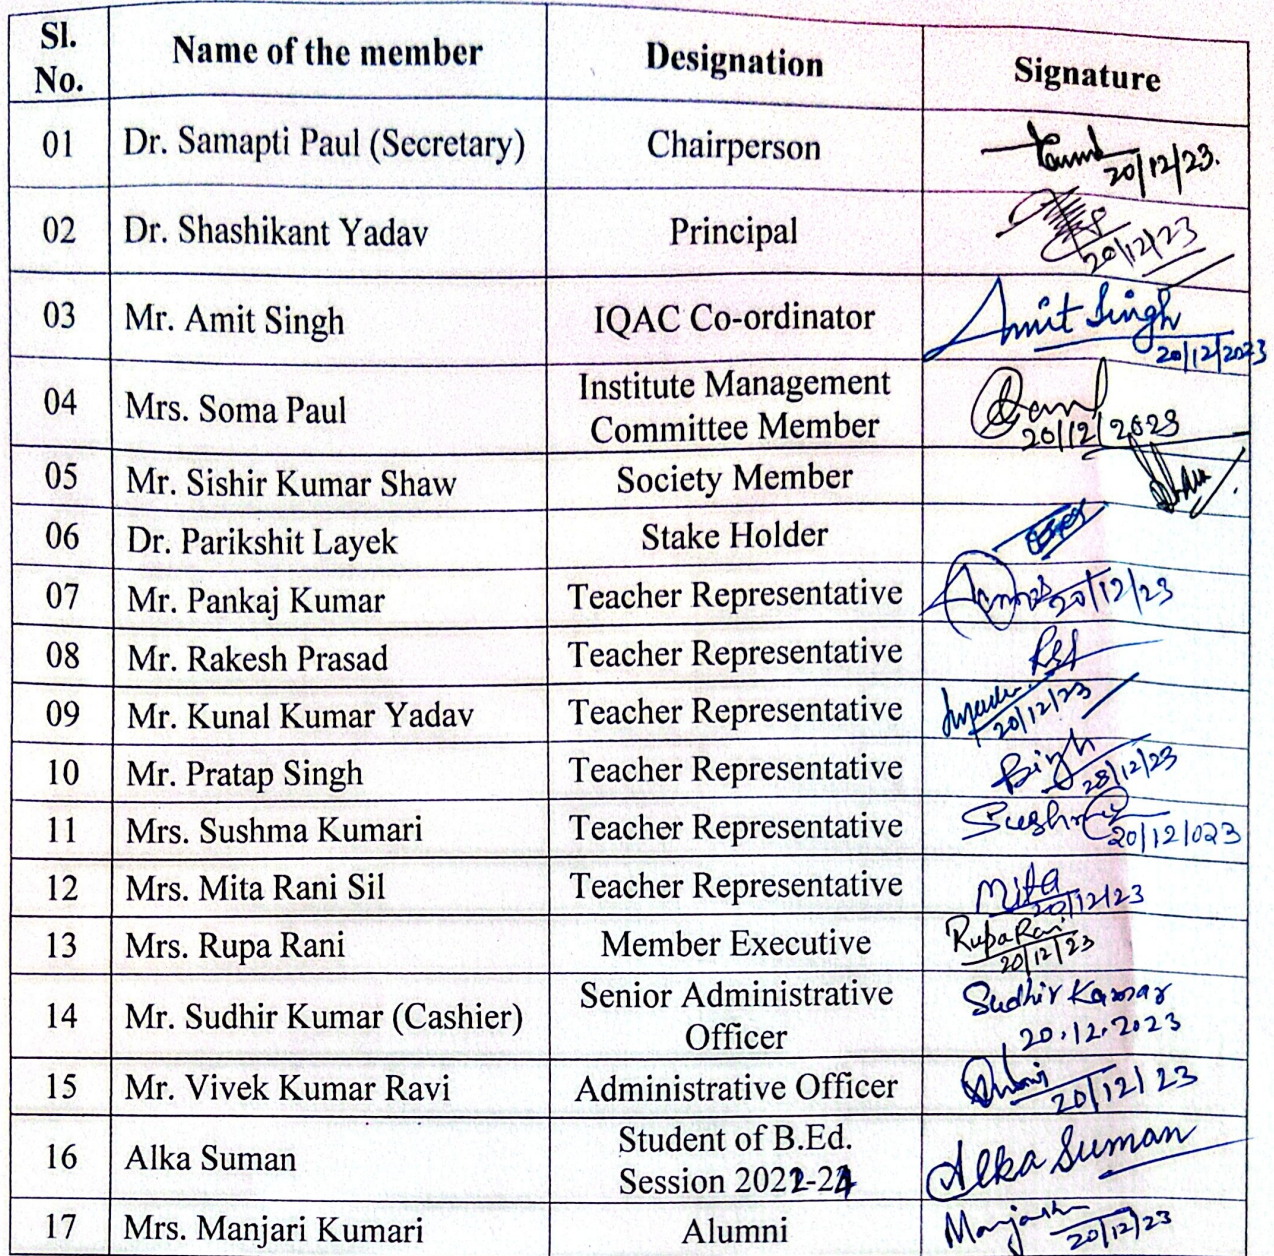 Sl. No. Name of the member Designation Signature
01 Dr. Samapti Paul (Secretary) Chairperson
20/12/23.
02 Dr. Shashikant Yadav Principal
20/12/23
03 Mr. Amit Singh IQAC Co-ordinator Amit Singh
20/12/2023
04 Mrs. Soma Paul Institute Management
Committee Member
20/12/2023
05 Mr. Sishir Kumar Shaw Society Member
06 Dr. Parikshit Layek Stake Holder
07 Mr. Pankaj Kumar Teacher Representative 20/12/23
08 Mr. Rakesh Prasad Teacher Representative
09 Mr. Kunal Kumar Yadav Teacher Representative
20/12/23
10 Mr. Pratap Singh Teacher Representative
/12/23
11 Mrs. Sushma Kumari Teacher Representative
20/12/023
12 Mrs. Mita Rani Sil Teacher Representative Mita
20/12/23
13 Mrs. Rupa Rani Member Executive Rupa Rani
20/12/23
14 Mr. Sudhir Kumar (Cashier) Senior Administrative
Officer
Sudhir Kumar
20.12.2023
15 Mr. Vivek Kumar Ravi Administrative Officer
20/12/23
16 Alka Suman Student of B.Ed.
Session 2022-24
Alka Suman
17 Mrs. Manjari Kumari Alumni
20/12/23